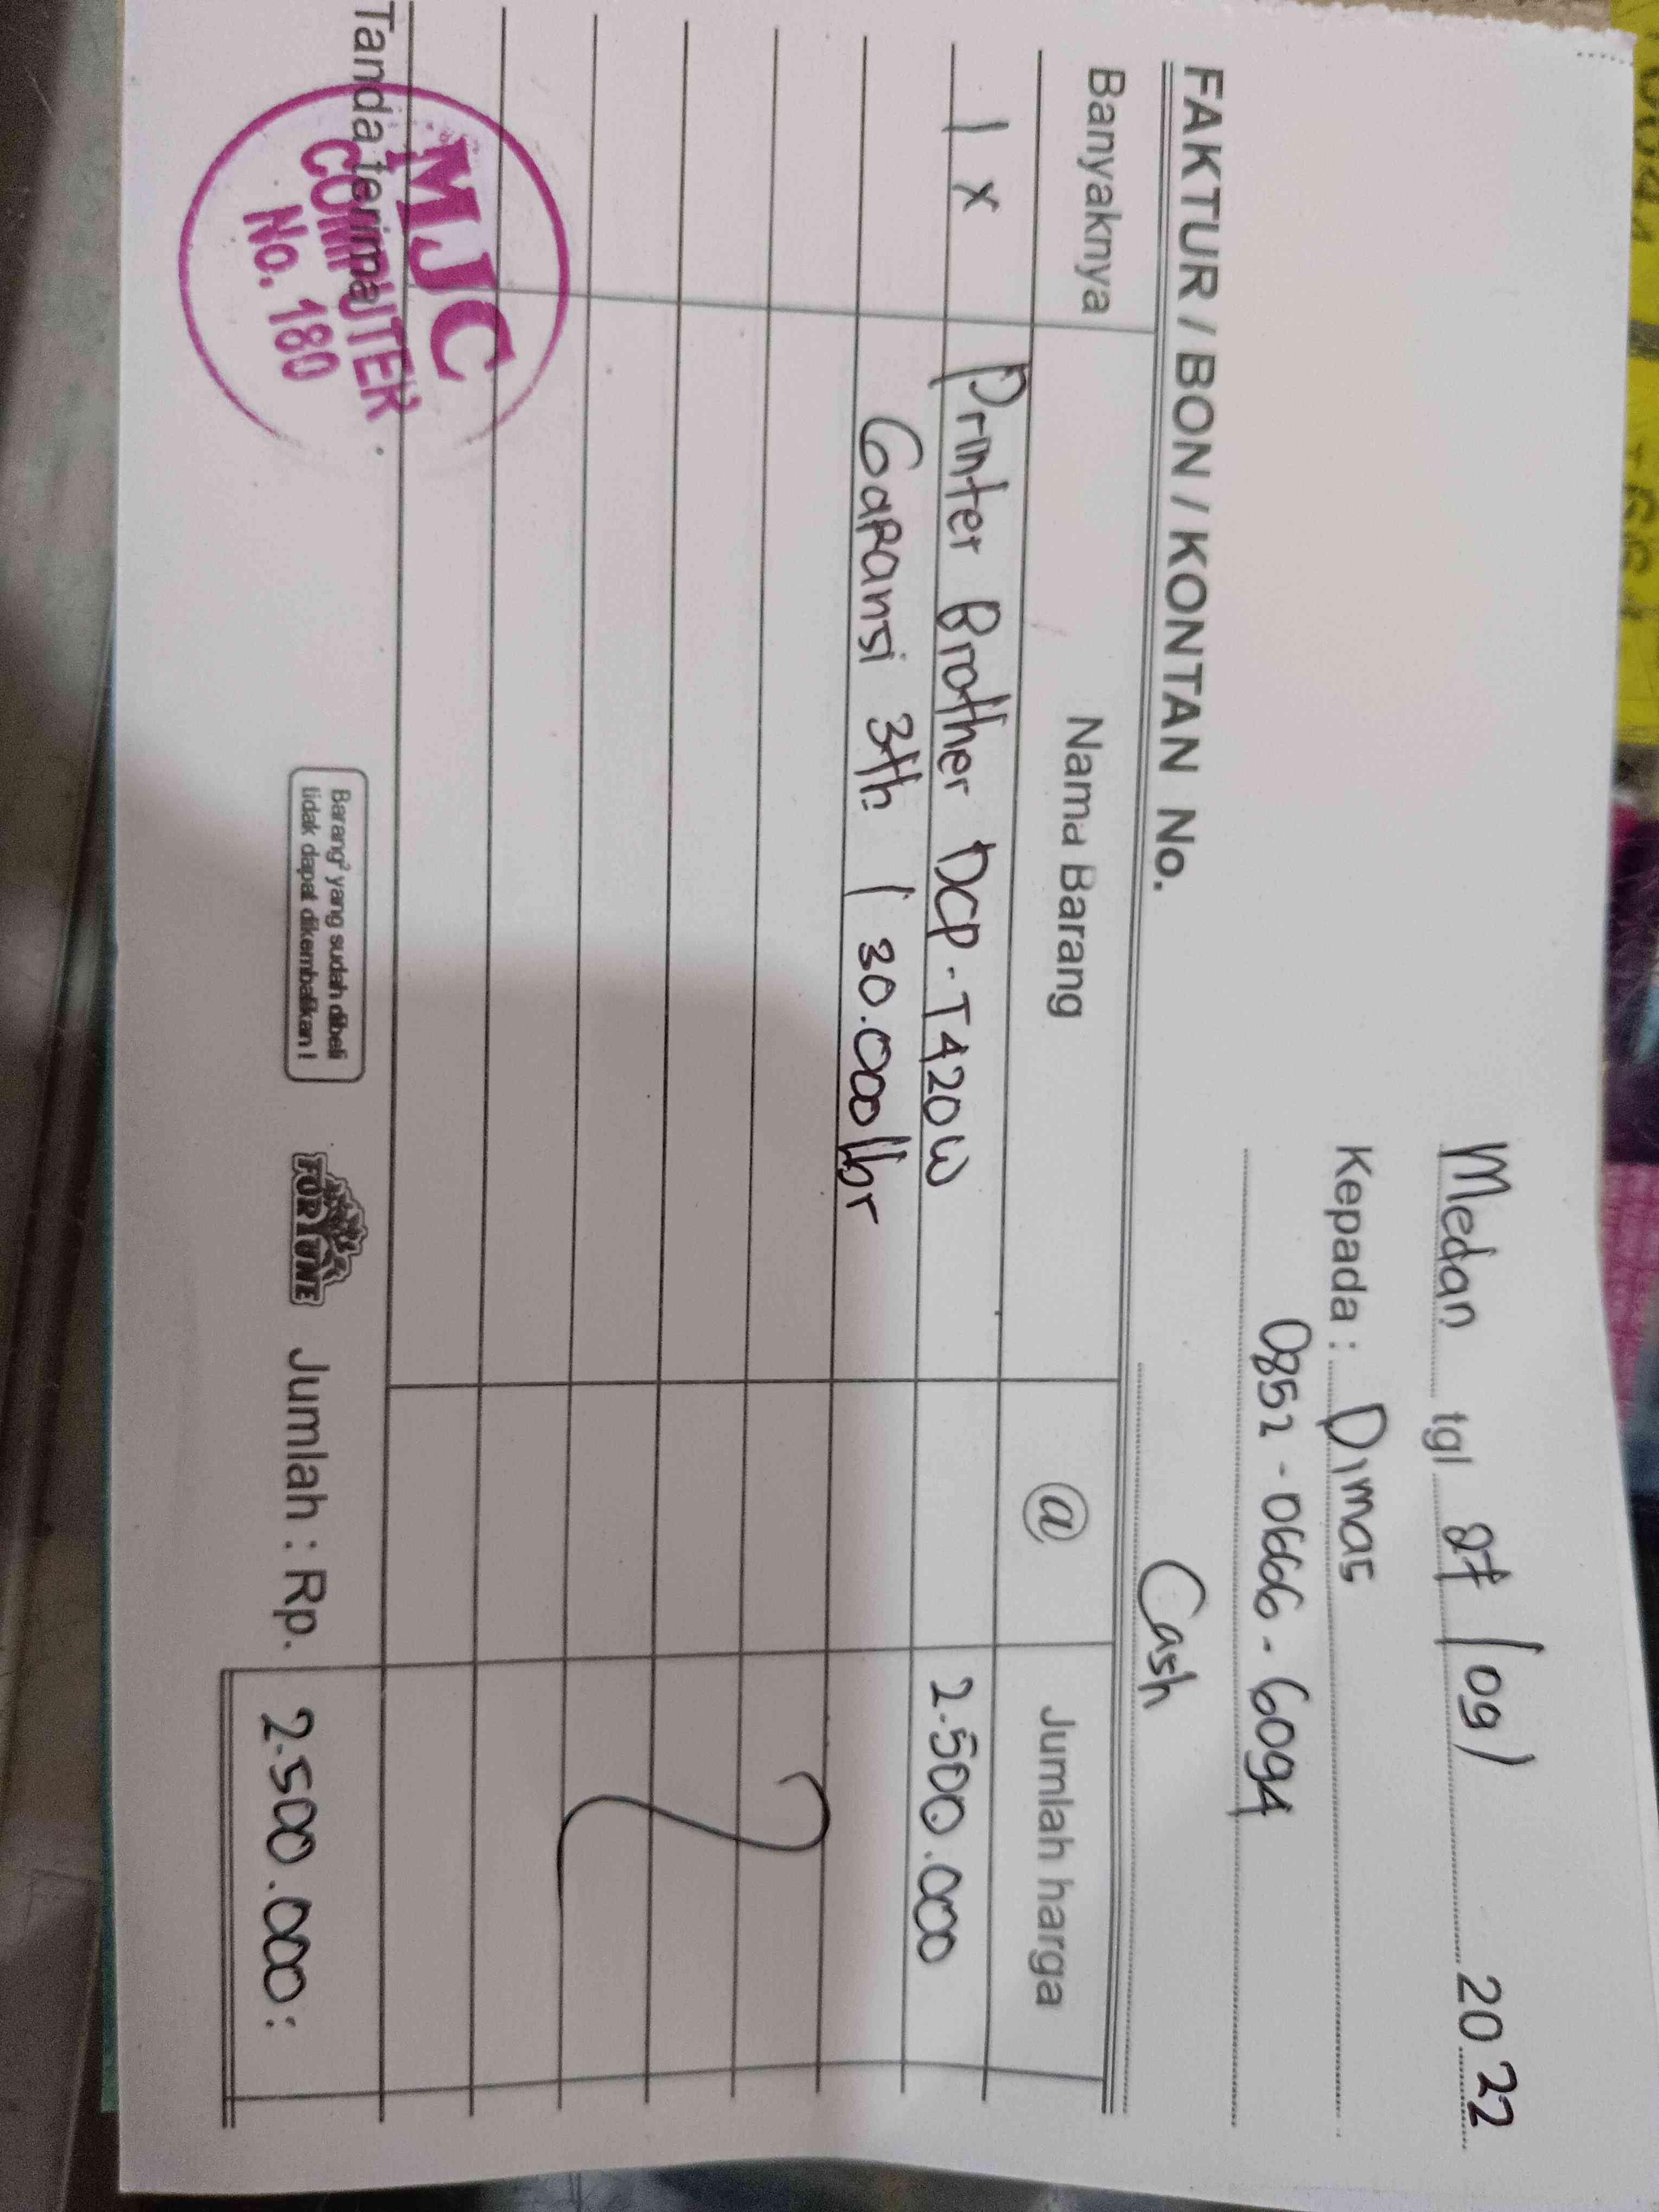 Medan tgl 27 / 09 / 2022
Kepada : Dimas
0852 - 0666 - 6094
FAKTUR / BON / KONTAN No. Cash
Banyaknya Nama Barang @ Jumlah harga
1 x Printer Brother DCP - T420W 2.500.000
Garansi 3th / 30.000 lbr
Tanda terima
MJC
COMPUTER
No. 180
Barang² yang sudah dibeli
tidak dapat dikembalikan !
FORTUNE
Jumlah : Rp. 2.500.000 :